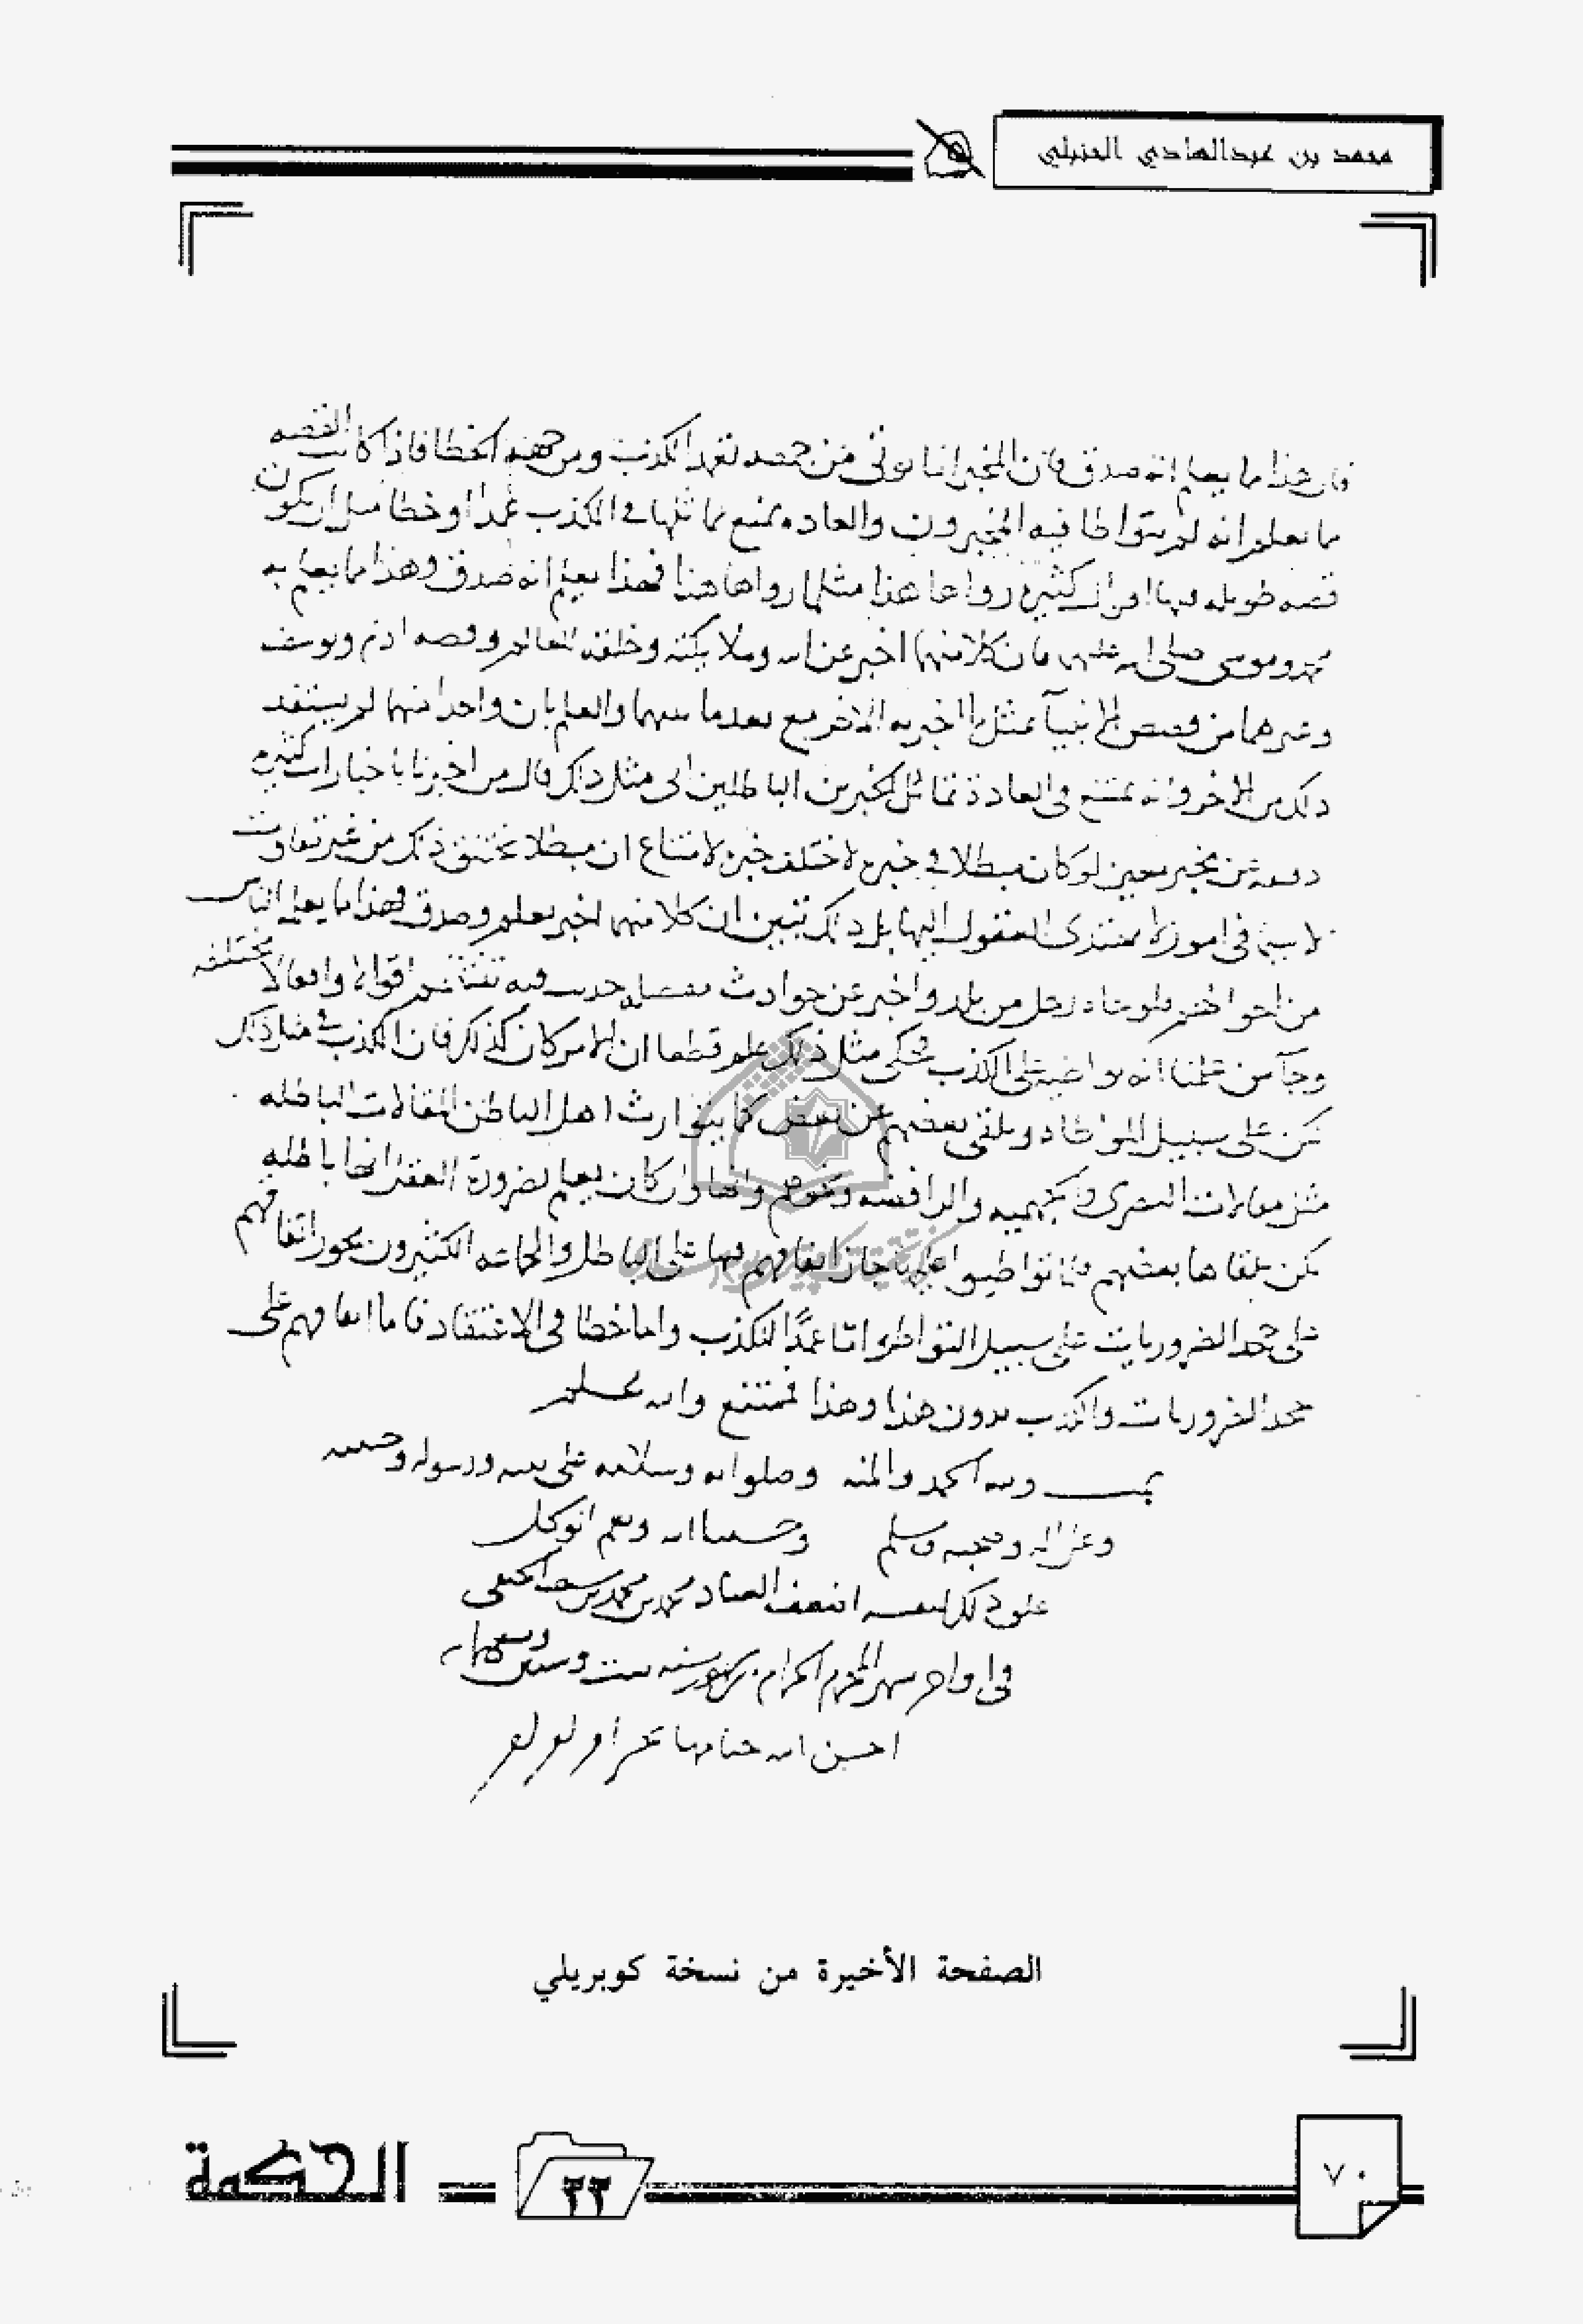 محمد بن عبدالهادي الحنبلي
فان هذا مما يعلم انه صدق فان المخبر انما يوتى من جهه تعمد الكذب ومن جهه الخطا فاذا كانت القصه
مما يعلم انه لم يتواطا فيه المخبرون والعاده تمنع تماثلها في الكذب عمدا او خطا مثل ان يكون
قصه طويله فيها اقوال كثيره رواها هذا مثلما رواها هذا فهذا يعلم انه صدق وهذا مما يعلم به
محمد وموسى صلى الله عليهما فان كلا منهما اخبر عن الله وملايكته وخلقه للعالم وقصه ادم ويوسف
وغيرهما من قصص الانبيآ بمثل ما اخبر به الاخر مع بعد ما بينهما والعلم بان واحدا منهما لم يستفد
ذلك من الاخر وانه يمتنع في العادة تماثل الخبرين الباطلين الى مثل ذلك فان من اخبرنا باخبارات كثيره
عن مخبر معين لو كان مبطلا في خبره لاختلف خبره لامتناع ان مبطلا يختلق ذلك من غير تفاوت
لا سيما في امور لا تهتدي العقول اليها بل ذلك تبين ان كلا منهما اخبر بعلم وصدق وهذا مما يعلمه الناس
من احوالهم فلو جاء رجل من بلد واخبر عن حوادث مفصله حدثت فيه تنتظم اقوالا وافعالا مختلفه
وجآ من علمنا انه لم يواطيه على الكذب فحكى مثل ذلك علم قطعا ان الامر كان كذلك فان الكذب في مثل ذلك
على سبيل المواطاه وتلقي بعضهم عن بعض كما يتوارث اهل الباطل المقالات الباطله
مثل مقالات النصارى والجهميه والرافضه ونحوهم وانها وان كان يعلم بضرورة العقل انها باطله
لكن تلقاها بعضهم فلما تواطيوا عليها جاز اتفاقهم فيها على الباطل والجماعه الكثيرون يجوز اتفاقهم
على جحد الضروريات على سبيل التواطو اما عمدًا للكذب واما خطا في الاعتقاد فاما اتفاقهم على
جحد الضروريات والكذب بدون هذا وهذا فممتنع والله اعلم
تمت ولله الحمد والمنه وصلواته وسلامه على نبيه ورسوله وحبيبه
وعلى اله وصحبه وسلم وحسبنا الله ونعم الوكيل
علق ذلك لنفسه اضعف العباد محمد بن محمد بن الحنفي
في اواخر شهر المحرم الحرام سنه ست
احسن الله ختامها
الصفحة الأخيرة من نسخة كوبريلي
٧٠
٢٢
الحكمة